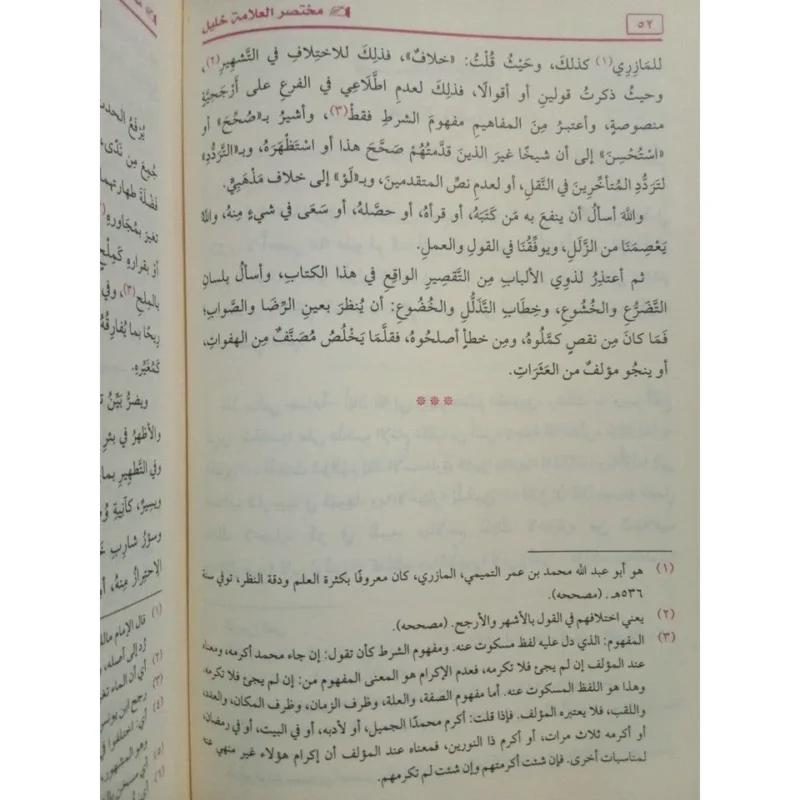 ٥٢
مختصر العلامة خليل
للمَازِرِي(١) كذلكَ، وحَيْثُ قُلْتُ: «خلافٌ»، فذلِكَ للاختِلافِ في التَّشهِيرِ(٢)،
وحيثُ ذكرتُ قولينِ أو أقوالًا، فذلكَ لعدمِ اطِّلَاعِي في الفرعِ على أَرْجَحِيَّةٍ
منصوصةٍ، وأعتبرُ مِنَ المفاهيمِ مفهومَ الشرطِ فقطْ(٣)، وأشيرُ بـ«صُحِّحَ» أو
«اسْتُحْسِنَ» إلى أن شيخًا غيرَ الذينَ قدَّمتُهُمْ صَحَّحَ هذا أو اسْتَظْهَرَهُ، وبـ«التَّرَدُّدِ»
لتَرَدُّدِ المُتأخِّرِينَ في النَّقلِ، أو لعدمِ نصِّ المتقدمين، وبـ«لَوْ» إلى خلاف مَذْهَبِيٍّ.
واللهَ أسألُ أن ينفعَ به مَن كَتَبَهُ، أو قرأهُ، أو حصَّلهُ، أو سَعَى في شيءٍ مِنهُ، واللهُ
يَعْصِمَنَا من الزَّلَلِ، ويوفِّقُنَا في القولِ والعملِ.
ثم أعتذِرُ لذوِي الألبابِ مِن التَّقصِيرِ الواقِعِ في هذا الكتابِ، وأسألُ بلسانِ
التَّضَرُّعِ والخُشُوعِ، وخِطَابِ التَّذَلُّلِ والخُضُوعِ: أن يُنظرَ بعينِ الرِّضَا والصَّوابِ؛
فَمَا كانَ مِن نقصٍ كمَّلُوهُ، ومِن خطأٍ أصلحُوهُ، فقلَّمَا يَخْلُصُ مُصَنَّفٌ مِن الهفواتِ،
أو ينجُو مؤلفٌ من العَثَرَاتِ.
(١) هو أبو عبد الله محمد بن عمر التميمي، المازري، كان معروفًا بكثرة العلم ودقة النظر، توفي سنة
٥٣٦هـ. (مصححه).
(٢) يعني اختلافهم في القول بالأشهر والأرجح. (مصححه).
(٣) المفهوم: الذي دل عليه لفظ مسكوت عنه. ومفهوم الشرط كأن تقول: إن جاء محمد أكرمه، ومعناه
عند المؤلف إن لم يجئ فلا تكرمه، فعدم الإكرام هو المعنى المفهوم من: إن لم يجئ فلا تكرمه،
وهذا هو اللفظ المسكوت عنه. أما مفهوم الصفة، والعلة، وظرف الزمان، وظرف المكان، والعدد،
واللقب، فلا يعتبره المؤلف. فإذا قلت: أكرم محمدًا الجميل، أو لأدبه، أو في البيت، أو في رمضان،
أو أكرمه ثلاث مرات، أو أكرم ذا النورين، فمعناه عند المؤلف أن إكرام هؤلاء غير منهي عنه
لمناسبات أخرى. فإن شئت أكرمتهم وإن شئت لم تكرمهم.
يُرْفَعُ الحدث
جُمِعَ مِن نَدًى،
فضلةَ طهارتهما
تغير بمُجَاورِهِ
أوْ بقرارِهِ كَمِلْحٍ
بالمِلحِ(٣)، وفي
رِيحًا بما يُفارِقُهُ
كَمُغَيِّرِهِ.
ويضرُّ بَيِّنُ
والأظهرُ في بئرِ
وفي التَّطهِيرِ بما
ويسيرٌ، كآنِيَةِ
وسؤرُ شاربِ
الاحترازُ مِنهُ،
(١) قال الإمام مالك
رُد إلى أصله،
(٢) أي أن الماء
(٣) رجح ابن يونس
(٤) أي: اختلفوا في
(٥) وهو المشهور
(٦)